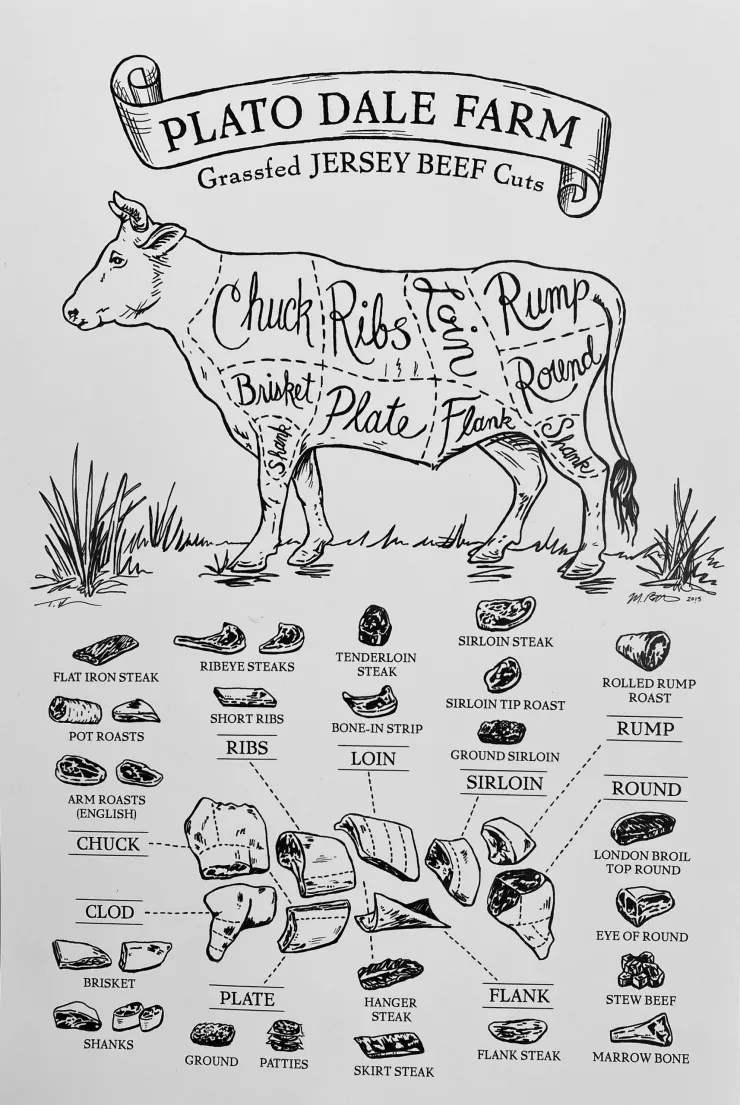 PLATO DALE FARM
Grassfed JERSEY BEEF Cuts
Chuck
Ribs
Loin
Rump
Round
Brisket
Plate
Flank
Shank
Shank
2015
FLAT IRON STEAK
RIBEYE STEAKS
TENDERLOIN
STEAK
SIRLOIN STEAK
ROLLED RUMP
ROAST
POT ROASTS
SHORT RIBS
BONE-IN STRIP
SIRLOIN TIP ROAST
ARM ROASTS
(ENGLISH)
RIBS
LOIN
GROUND SIRLOIN
SIRLOIN
RUMP
ROUND
CHUCK
LONDON BROIL
TOP ROUND
CLOD
EYE OF ROUND
BRISKET
PLATE
HANGER
STEAK
FLANK
STEW BEEF
SHANKS
GROUND
PATTIES
SKIRT STEAK
FLANK STEAK
MARROW BONE